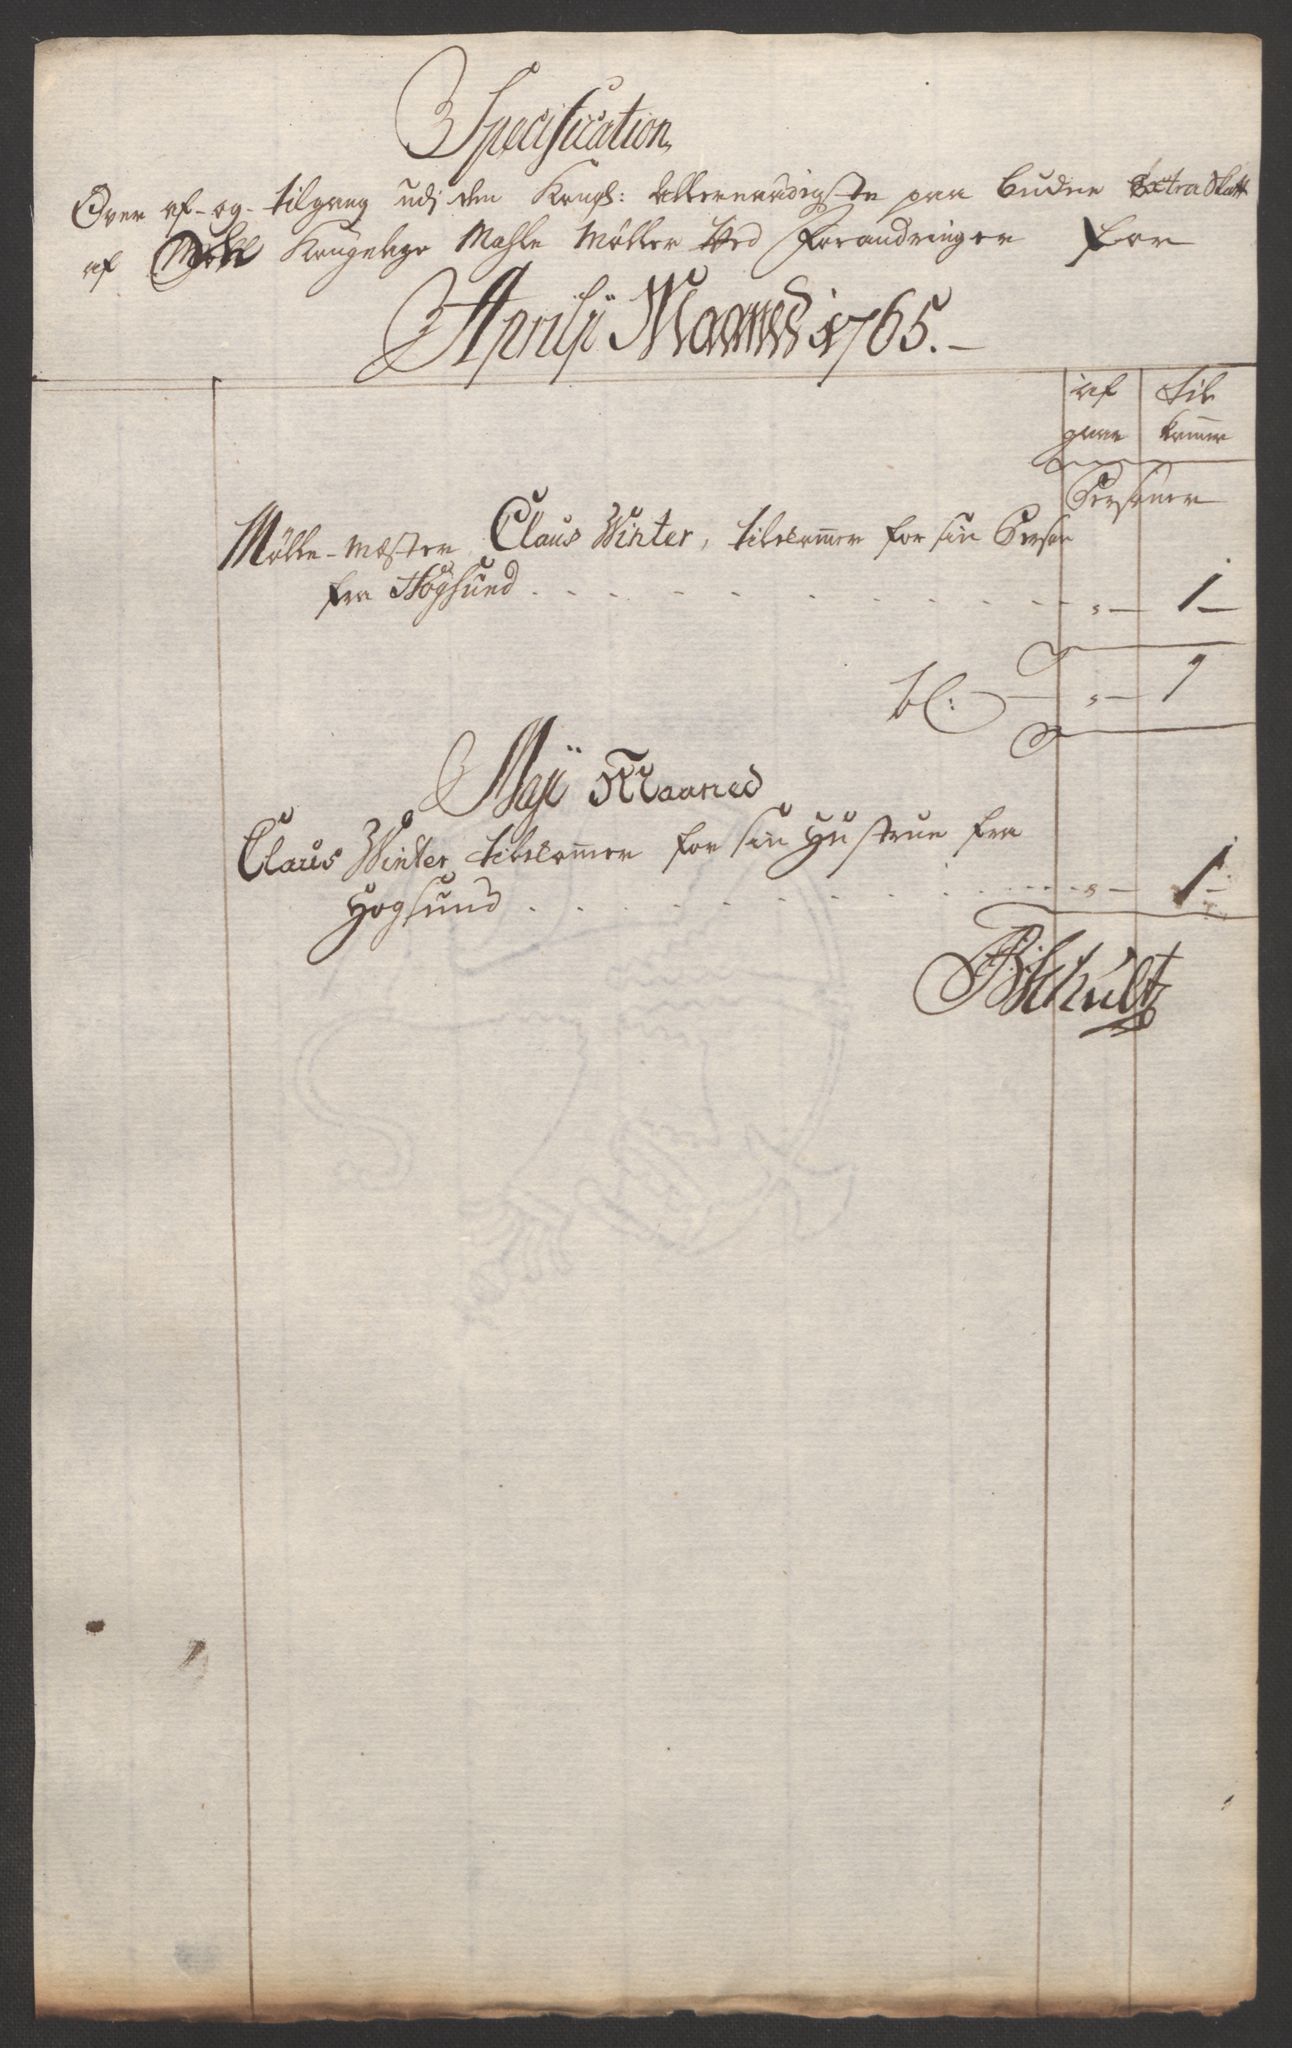 Specification
Over af- og- tilgang udj den Kongl: Allernaadigste paa budne Extra Skatt
af Kongelige Mahle Møller Ved Forandringer for
Aprilij Maaned 1765.-
af til
gaar kommer
Personer
Mølle-Mester Claus Winter, tilkommer for sin Person
fra Hogsund . . . . . . . . . . " - 1 -
bl: - " - 1
Maji Maaned
Claus Winter tilkommer for sin Hustrue fra
Hogsund . . . . . . . . . . " - 1 -
Schultz